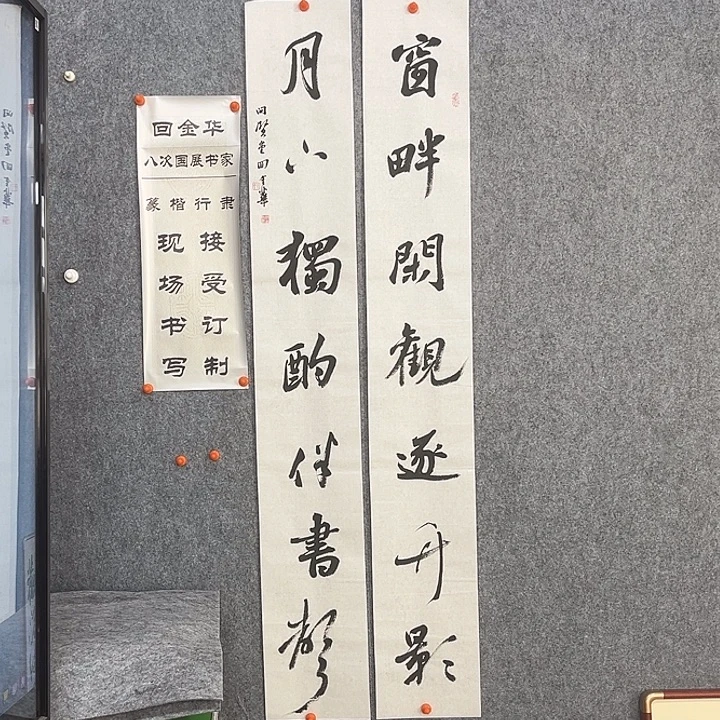 窗畔閑觀逐月影
月下獨酌伴書聲
回金华
八次国展书家
篆楷行隶
现场书写
接受订制